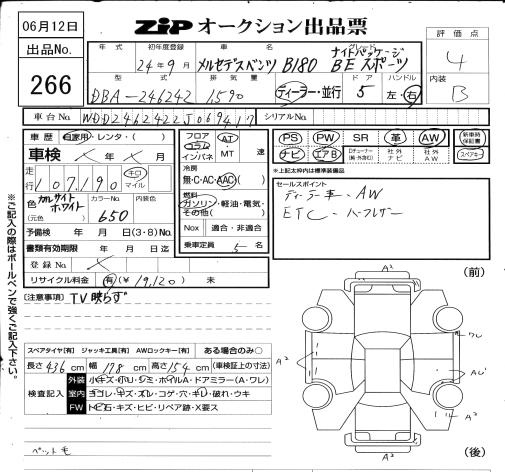 06月12日
ZIP オークション出品票
出品No.
266
評価点
4
内装
B
年式 初年度登録 車名 グレード
24年9月 メルセデスベンツ B180 ナイトパッケージ BEスポーツ
型式 排気量 ドア ハンドル
DBA-246242 1,590 ディーラー・並行 5 左・右
車台No. WDD2462422J069417 シリアルNo.
車歴 自家用・レンタ・( )
車検
走行 107,190 キロ マイル
色 カルサイトホワイト (元色)
カラーNo. 650
内装色
予備検 年 月 日(3・8)No.
書類有効期限 年 月 日迄
登録No.
リサイクル料金 有(¥19,120) 未
フロア コラム インパネ
AT MT 速
冷房 無・C・AC・AAC( )
燃料 ガソリン・軽油・電気・その他( )
Nox 適合・非適合
乗車定員 5 名
PS PW SR 革 AW 新車時保証書
ナビ エアB Dチューナー(純・外含む) 社外ナビ 社外AW スペアキー
※上記太枠内は標準装備品
セールスポイント
ディーラー車・AW
ETC・ハーフレザー
[注意事項] TV映らず
※ご記入の際はボールペンで強くご記入下さい。
スペアタイヤ[有] ジャッキ工具[有] AWロックキー[有] ある場合のみ〇
長さ 436 cm 幅 178 cm 高さ 154 cm (車検証上の寸法)
検査記入
外装 小キズ・小U・シミ・ホイルA・ドアミラー(A・ワレ)
室内 ヨゴレ・キズ・スレ・コゲ・穴・キレ・破れ・ウキ
FW トビ石・キズ・ヒビ・リペア跡・X要ス
ペット毛
(前)
A2
ワレ
A2
AU1
A2
A2
(後)